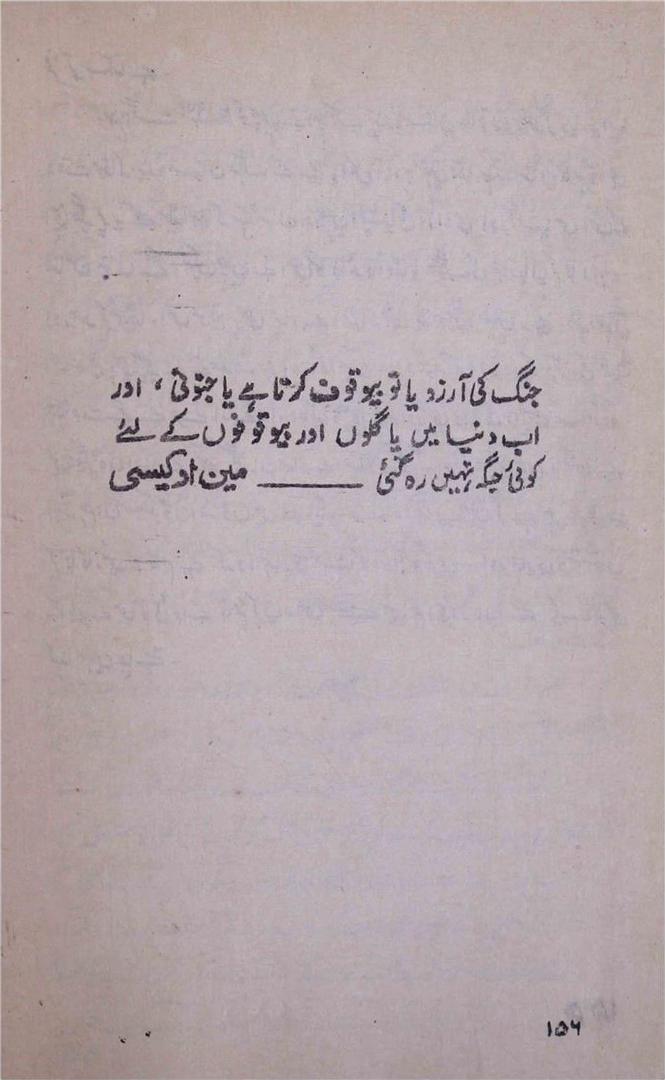 جنگ کی آرزو یا تو بیوقوف کرتا ہے یا جنونی، اور
اب دنیا میں پاگلوں اور بیوقوفوں کے لئے
کوئی جگہ نہیں رہ گئی ——— مین اوکیسی
۱۵۶